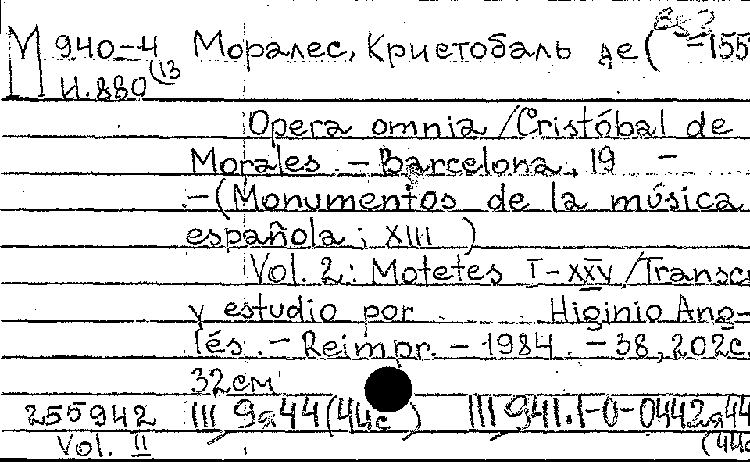 М 940-4 Моралес, Кристобаль де ( -155
И.880 (13
Opera omnia / Cristóbal de
Morales. - Barcelona, 19 -
.-(Monumentos de la música
española; XIII )
Vol. 2: Motetes I-XXV / Transc
y estudio por Higinio Ang-
lés. - Reimpr. - 1984. - 38, 202с.
32см
255942 Ш 9а44(44с ) Ш 941.1-0-0442я44
Vol. II (44с